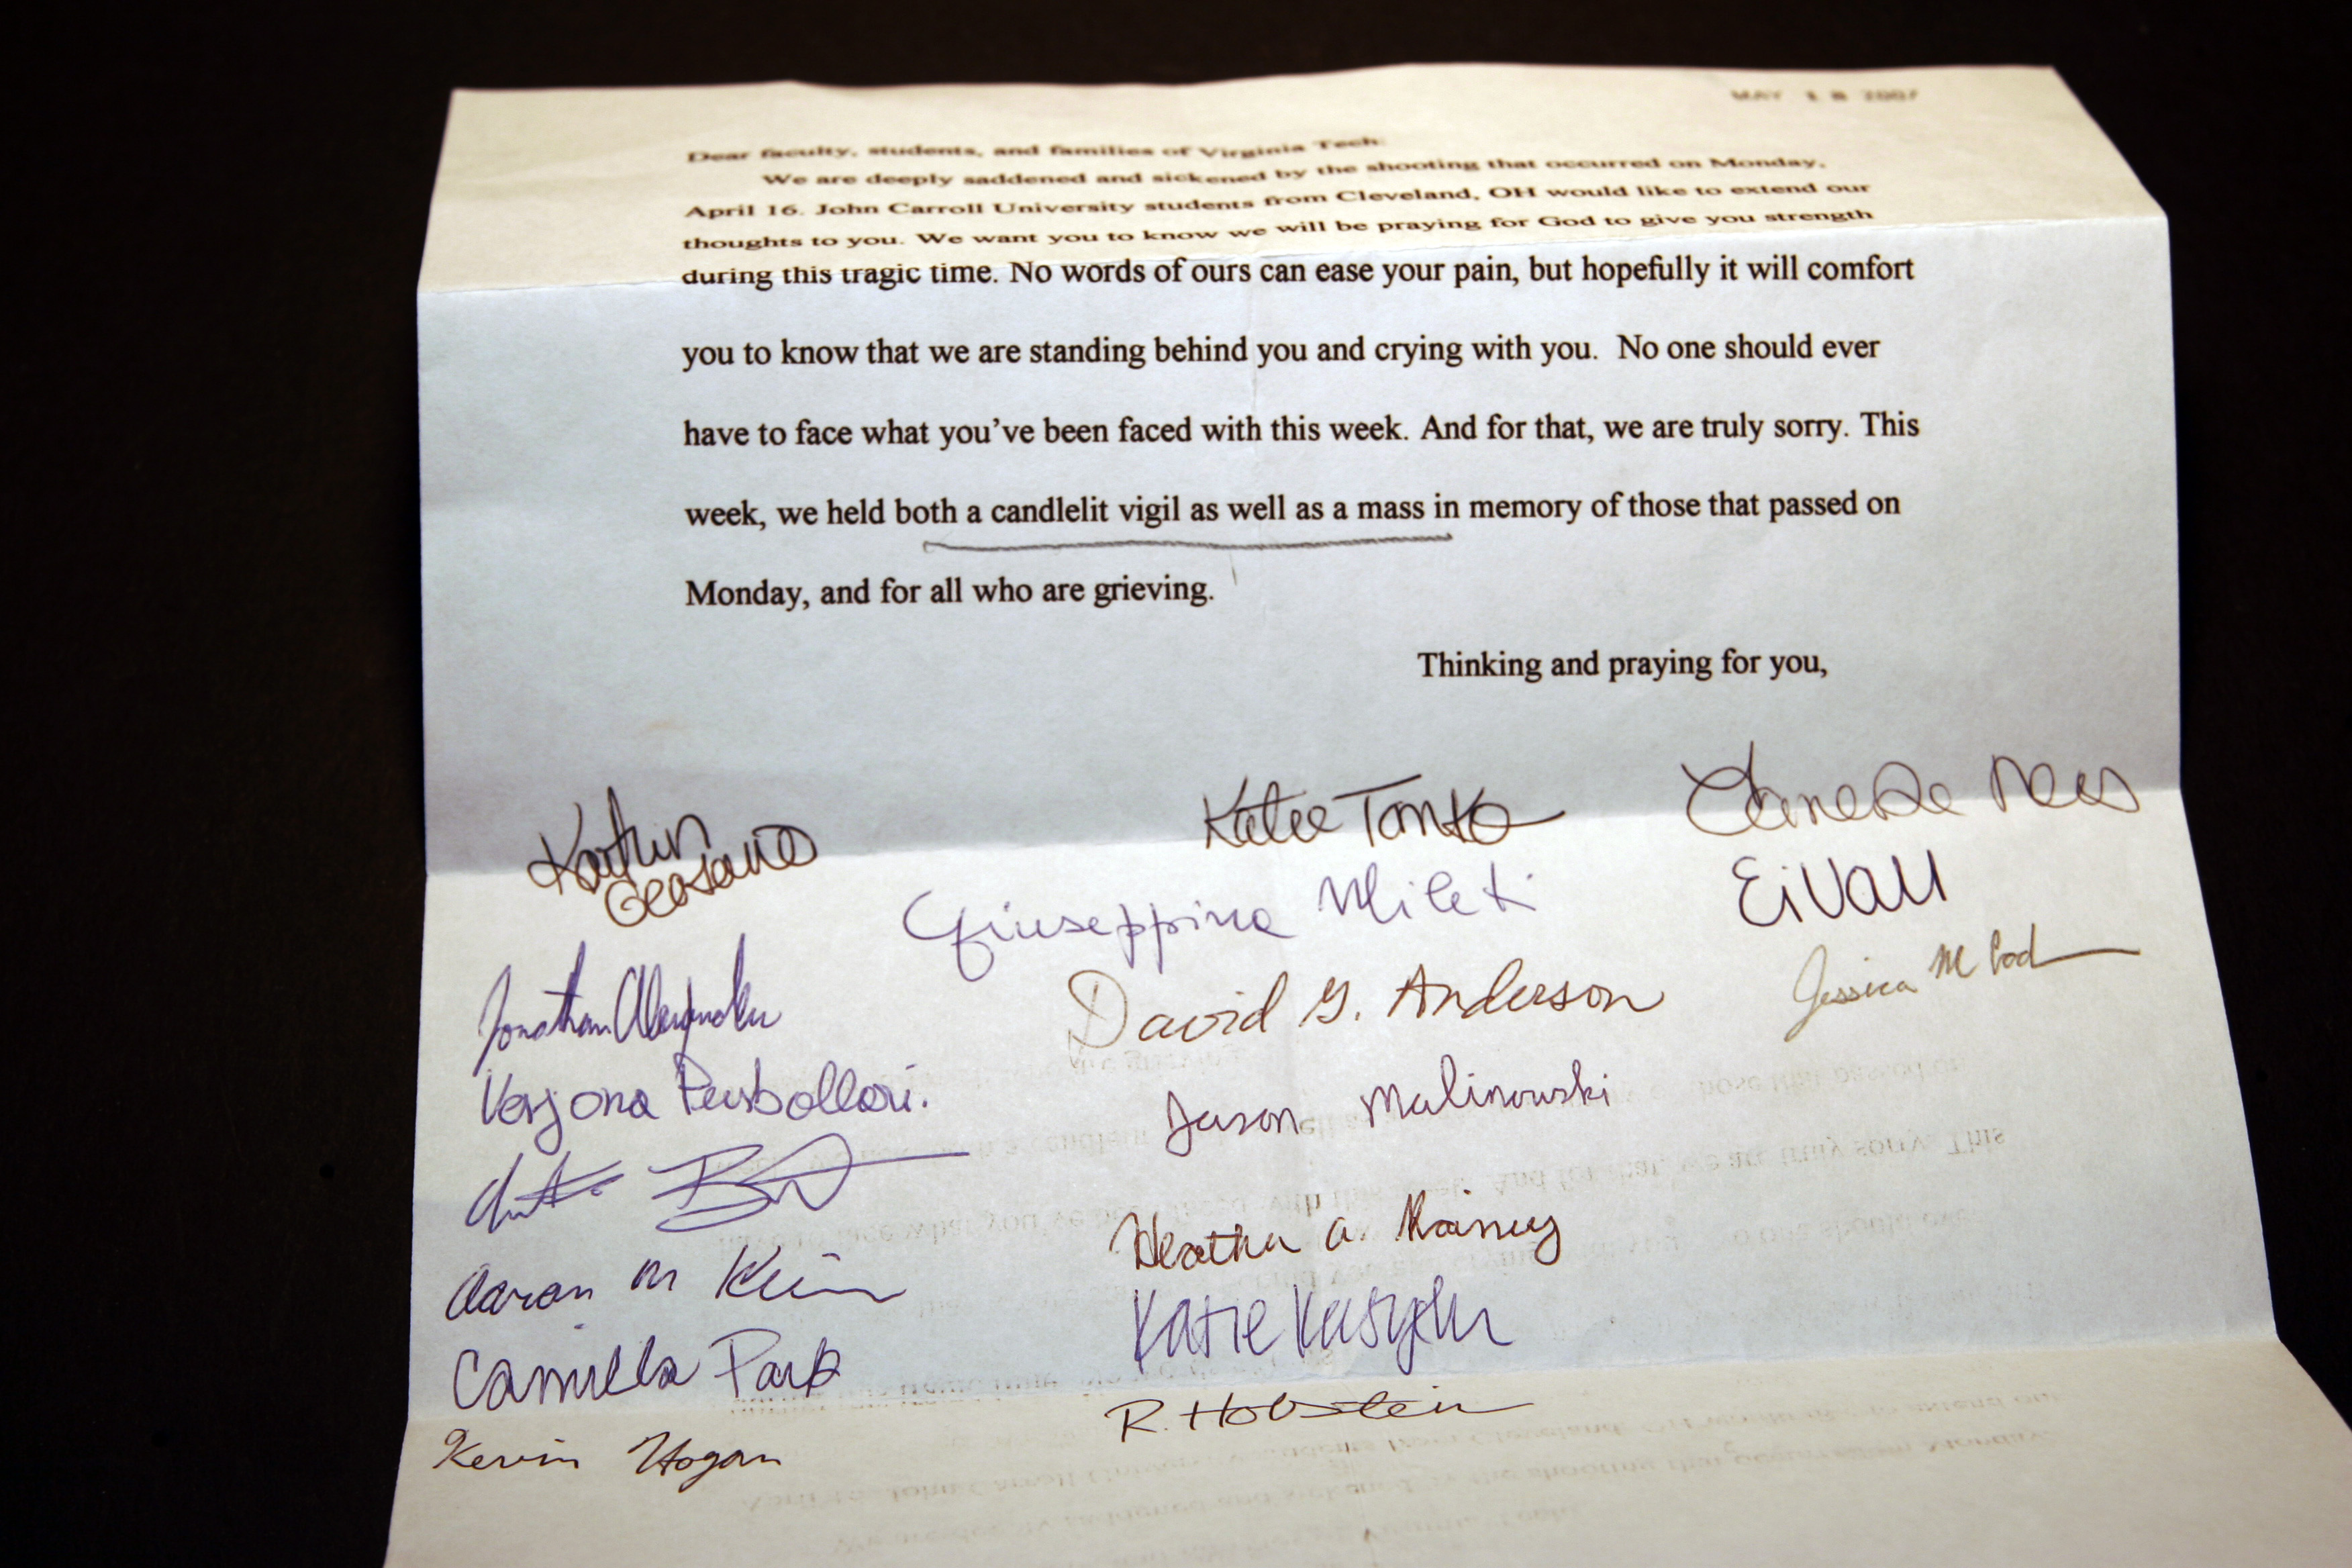 MAY 18 2007
Dear faculty, students, and families of Virginia Tech:
We are deeply saddened and sickened by the shooting that occurred on Monday,
April 16. John Carroll University students from Cleveland, OH would like to extend our
thoughts to you. We want you to know we will be praying for God to give you strength
during this tragic time. No words of ours can ease your pain, but hopefully it will comfort
you to know that we are standing behind you and crying with you. No one should ever
have to face what you've been faced with this week. And for that, we are truly sorry. This
week, we held both a candlelit vigil as well as a mass in memory of those that passed on
Monday, and for all who are grieving.
Thinking and praying for you,
Katie
Giuseppina Mileti
Jonathan
David G. Anderson
Jessica M
Jason Malinowski
Heather A.
Aaron M
Katie
Camilla Park
R. Hobstein
Kevin Hogan